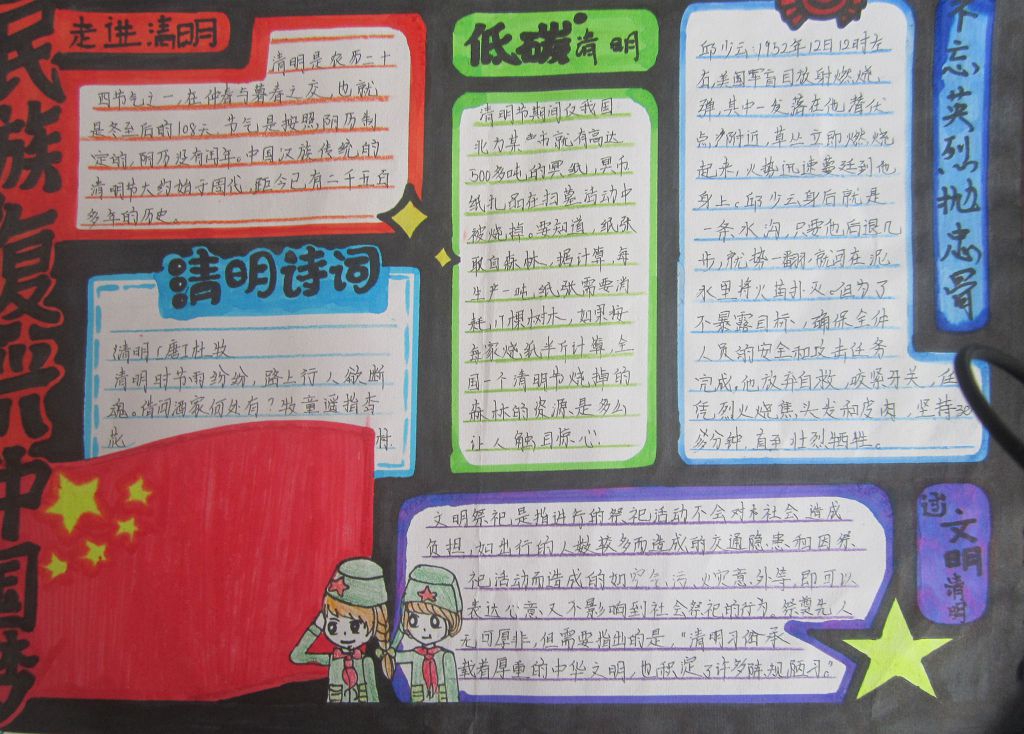 民族复兴中国梦
走进清明
清明是农历二十
四节气之一,在仲春与暮春之交,也就
是冬至后的108天。节气是按照阴历制
定的,阴历没有闰年。中国汉族传统的
清明节大约始于周代,距今已有二千五百
多年的历史。
清明诗词
清明[唐]杜牧
清明时节雨纷纷,路上行人欲断
魂。借问酒家何处有?牧童遥指杏
花
村
低碳清明
清明节期间仅我国
北方某些市就有高达
500多吨的冥纸,冥币
纸扎品在扫墓活动中
被烧掉。要知道,纸张
取自森林,据计算,每
生产一吨,纸张需要消
耗,17棵树木,如果按
每家烧纸半斤计算,全
国一个清明节烧掉的
森林的资源是多么
让人触目惊心.
邱少云:1952年12月12时左
右,美国军盲目放射燃烧,
弹,其中一发落在他潜伏
点附近,草丛立即燃烧
起来,火势迅速蔓延到他
身上。邱少云身后就是
一条水沟,只要他后退几
步,就势一翻,就可在泥
水里将火苗扑灭。但为了
不暴露目标,确保全体
人员的安全和攻击任务
完成,他放弃自救,咬紧牙关,任
凭烈火烧焦头发和皮肉,坚持30
多分钟,直至壮烈牺牲。
不忘英烈抛忠骨
文明祭祀是指进行的祭祀活动不会对本社会造成
负担,如出行的人数较多而造成的交通隐患和因祭
祀活动而造成的如空气污,火灾意外等,即可以
表达心意又不影响到社会祭祀的行为.祭尊先人
无可厚非,但需要指出的是,“清明习俗承
载着厚重的中华文明,也积淀了许多陈规陋习。”
文明清明